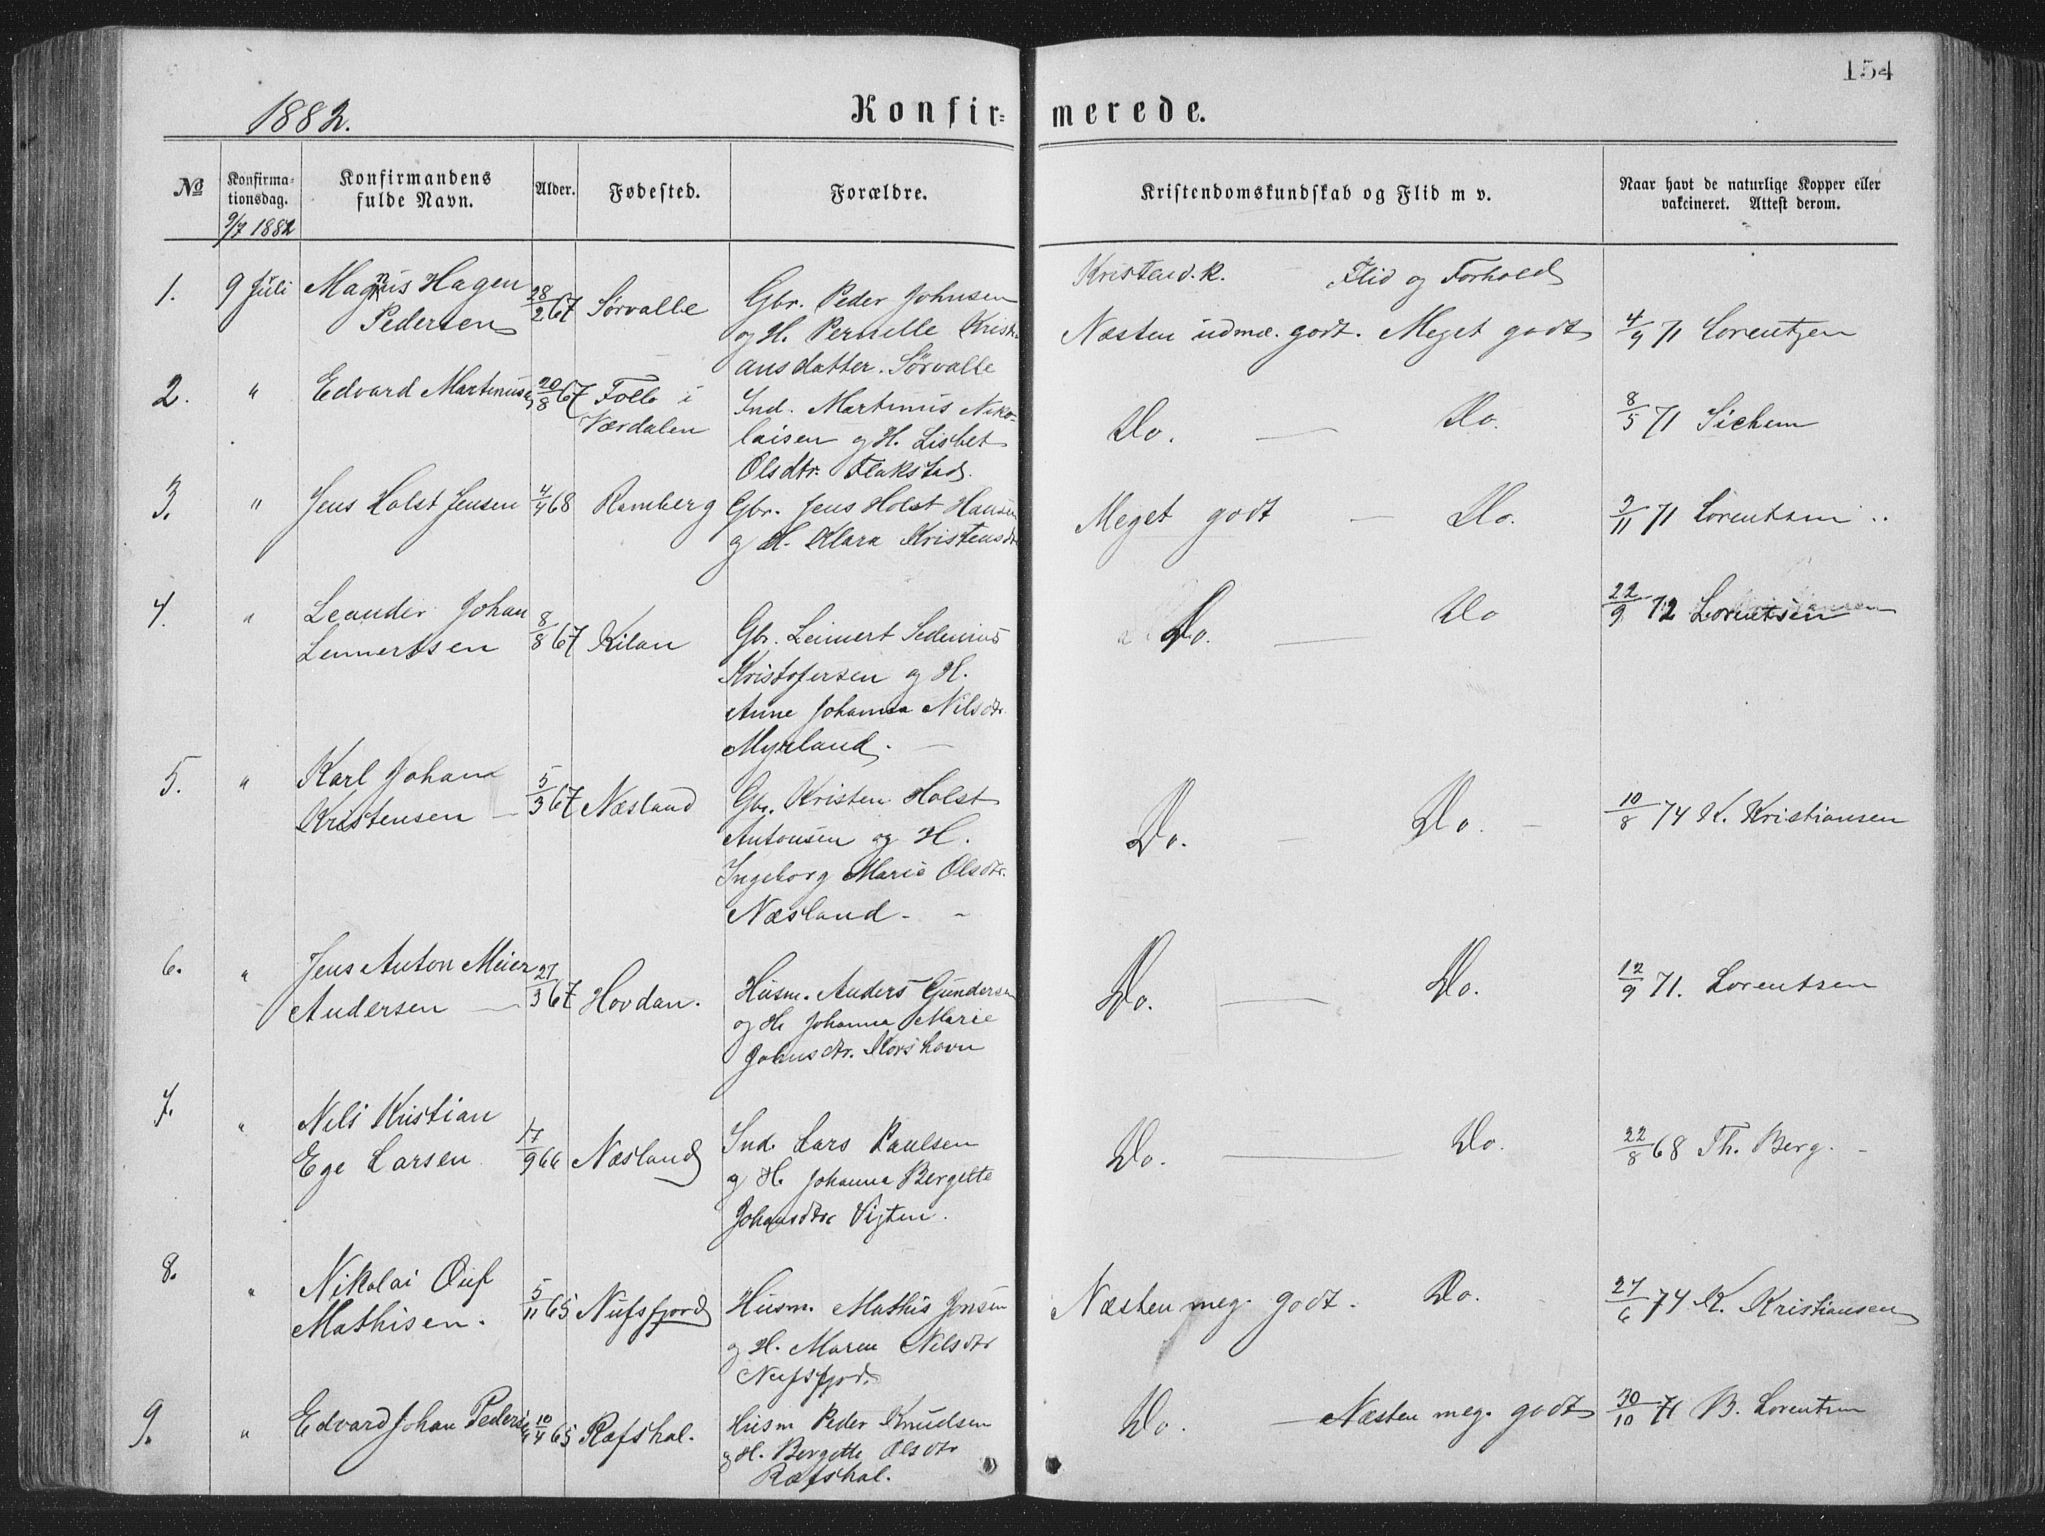 154
1882.
Konfir-
merede.
No
Konfirma-
tionsdag.
9/7 1882
Konfirmandens
fulde Navn.
Alder.
Fødested.
Forældre.
Kristendomskundskab og Flid m v.
Naar havt de naturlige Kopper eller
vakcineret. Attest derom.
Kristend.k. Flid og Forhold
1. 9 Juli
Magnus Hagen
Pedersen
28/2 67 Sørvalle
Gbr. Peder Johnsen
og H. Pernille Kristi-
ansdatter. Sørvalle
Næsten udmæ. godt. Meget godt
4/9 71 Lorentzen
2. "
Edvard Martinusen
20/8 67 Follo i
Værdalen
Ind. Martinus Niko-
laisen og H. Lisbet
Olsdtr. Flakstad.
Do. — Do.
8/5 71 Sichem
3. "
Jens Holst Jensen
4/4 68 Ramberg
Gbr. Jens Holst Hansen
og H. Klara Kristensdtr
Meget godt — Do.
/11 71
4. "
Leander Johan
Lennertsen
8/8 67 Kilan
Gbr. Leinert Sedenius
Kristofersen og H.
Anne Johanna Nilsdtr.
Myrland. —
Do. — Do
22/9 72 Lorentsen
5. "
Karl Johan
Kristensen —
5/3 67 Næsland
Gbr. Kristen Holst
Antonsen og H.
Ingeborg Marie Olsdtr.
Næsland - -
Do. — Do. —
10/8 74 K. Kristiansen
6. "
Jens Anton Meier
Andersen —
27/3 67 Hovdan.
Husm. Anders Gundersen
og H. Johanna Marie
Johnsdtr. Korshavn
Do. — Do.
12/9 71. Lorentsen
7. "
Nils Kristian
Ege Larsen
17/9 66 Næsland
Ind. Lars Paulsen
og H. Johanna Bergitte
Johansdtr Vigten.
Do. — Do.
22/8 68 Th. Berg. -
8. "
Nikolai
Mathisen.
5/11 65 Nufsfjord
Husm. Mathis Jonsen
og H. Maren Nilsdtr
Nufsfjord.
Næsten meg. godt. Do.
27/6 74 K. Kristiansen
9. "
Edvard Johan Pedersen
10/4 65 Ræfshal.
Husm Peder Knudsen
og H. Bergitte Olsdtr
Ræfshal.
Do. — Næsten meg. godt
30/10 71 B. Lorentsen